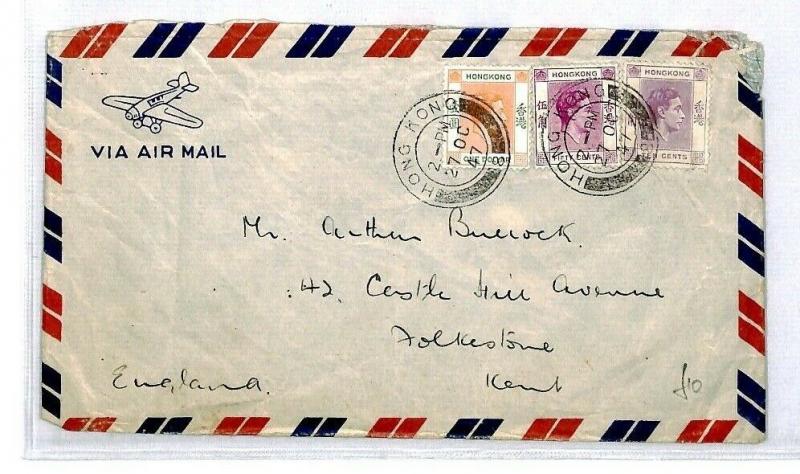 HONGKONG HONGKONG HONGKONG
香港 伍角 香港 香港
ONE DOLLAR FIFTY CENTS TEN CENTS
HONG KONG
2 - PM
27 OC
47
HONG KONG
2 - PM
27 OC
47
VIA AIR MAIL
Mr. Arthur Bullock.
42, Castle Hill Avenue
Folkestone
England. Kent
£10